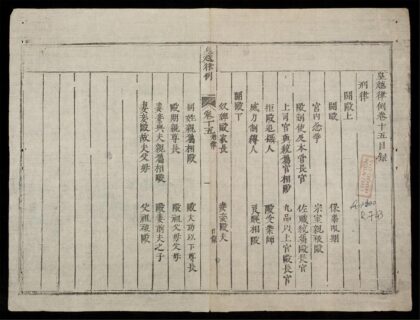 皇越律例卷十五目錄
刑律
鬪毆上
鬪毆 保辜限期
宮內忿爭 宗室親被毆
毆制使及本管長官 佐職統屬毆長官
上司官與統屬官相毆 九品以上官毆長官
拒毆追攝人 毆受業師
威力制縛人 良賤相毆
鬪毆下
奴婢毆家長 妻妾毆夫
皇越律例 卷十五 一
同姓親屬相毆 毆大功以下尊長
毆期親尊長 毆祖父母父母
妻妾與夫親屬相毆 毆妻前夫之子
妻妾毆故夫父母 父祖被毆